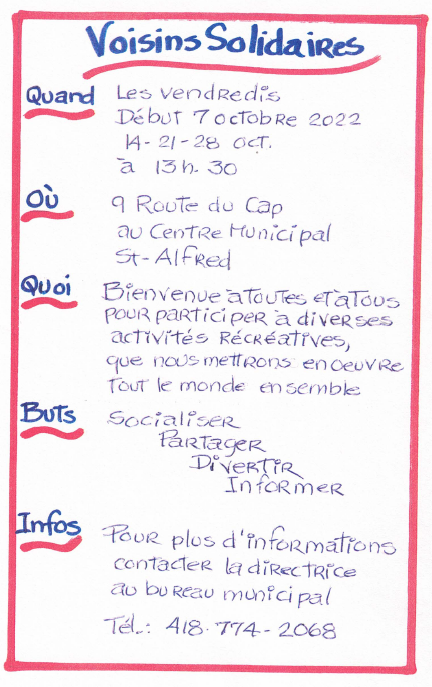 Voisins Solidaires
Quand Les vendredis
Début 7 octobre 2022
14-21-28 oct.
à 13 h. 30
Où 9 Route du Cap
au Centre Municipal
St-Alfred
Quoi Bienvenue à toutes et à tous
pour participer à diverses
activités récréatives,
que nous mettrons en oeuvre
tout le monde ensemble
Buts Socialiser
Partager
Divertir
Informer
Infos Pour plus d'informations
contacter la directrice
au bureau municipal
Tél.: 418-774-2068